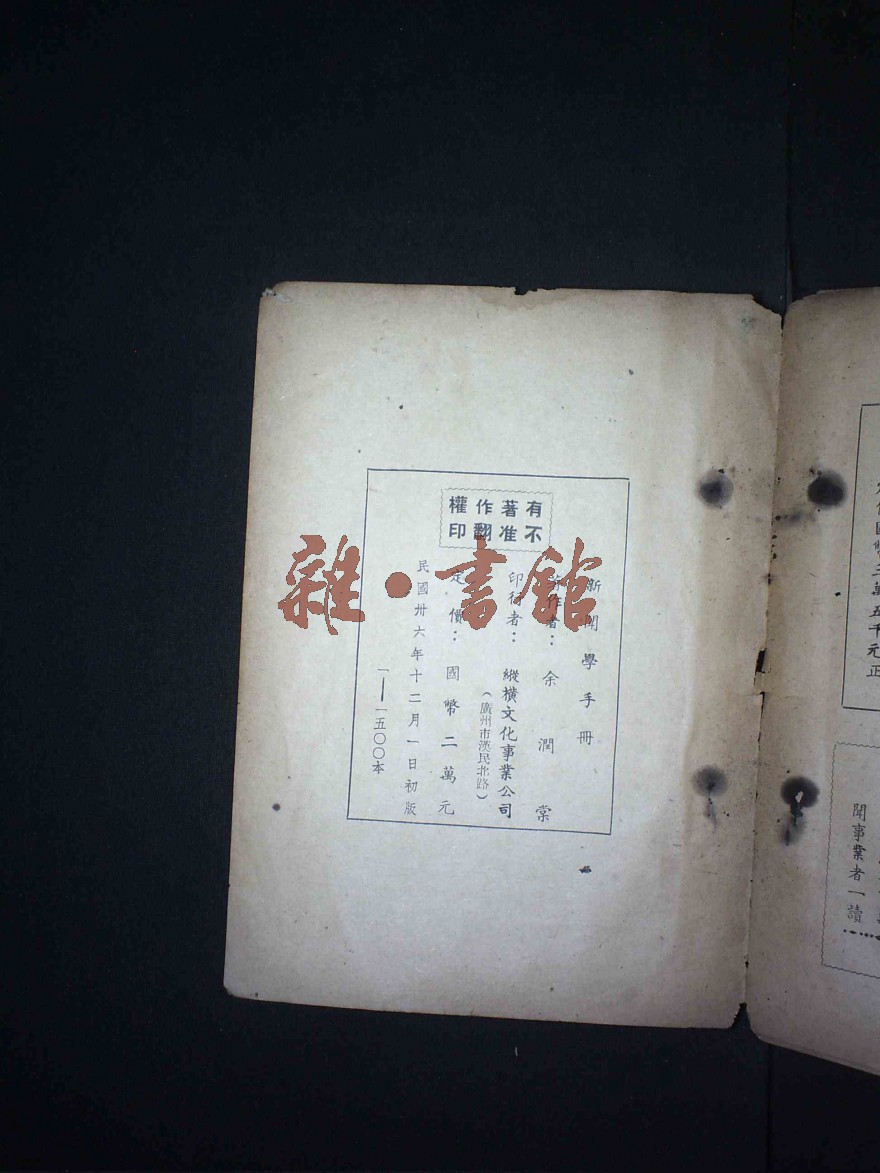 有著作權
不准翻印
新聞學手冊
著作者：余潤棠
印行者：縱橫文化事業公司
（廣州市漢民北路）
定價：國幣二萬元
民國卅六年十二月一日初版
一——一五〇〇本
雜·書館
二萬五千元正
聞事業者一讀